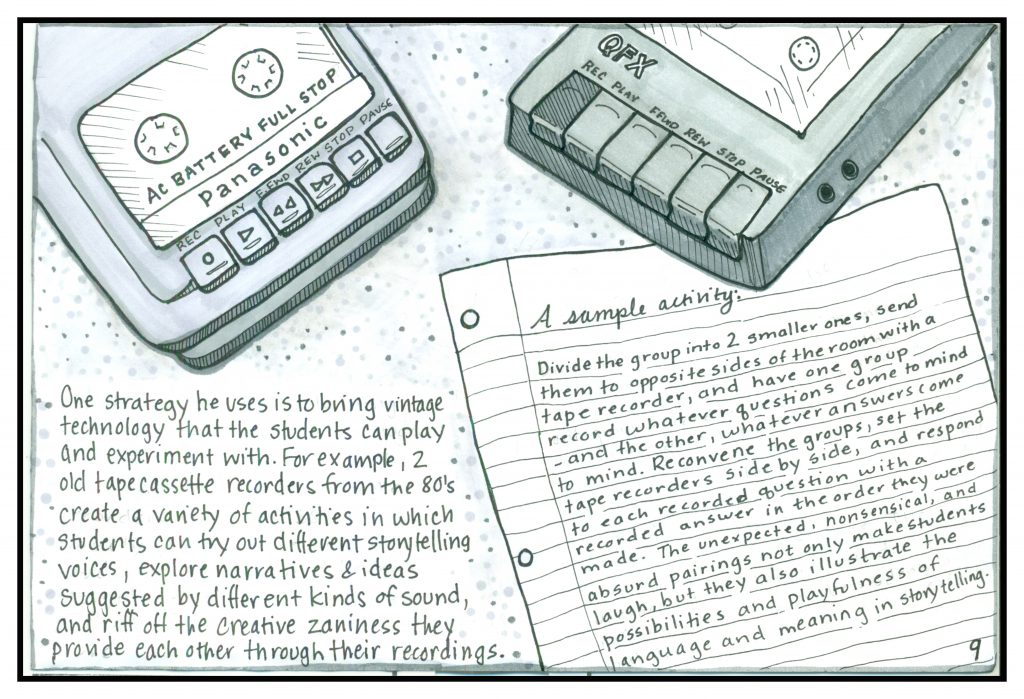 AC BATTERY FULL STOP
Panasonic
REC PLAY F.FWD REW STOP PAUSE
QFX
REC PLAY FFWD REW STOP PAUSE
One strategy he uses is to bring vintage
technology that the students can play
and experiment with. For example, 2
old tape cassette recorders from the 80's
create a variety of activities in which
students can try out different storytelling
voices, explore narratives & ideas
suggested by different kinds of sound,
and riff off the creative zaniness they
provide each other through their recordings.
A sample activity:
Divide the group into 2 smaller ones, send
them to opposite sides of the room with a
tape recorder, and have one group
record whatever questions come to mind
- and the other, whatever answers come
to mind. Reconvene the groups, set the
tape recorders side by side, and respond
to each recorded question with a
recorded answer in the order they were
made. The unexpected, nonsensical, and
absurd pairings not only make students
laugh, but they also illustrate the
possibilities and playfulness of
language and meaning in storytelling.
9